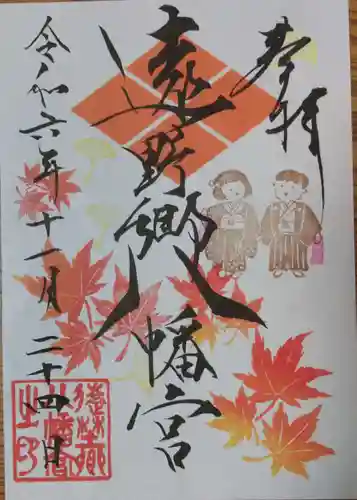 奉拝
遠野郷八幡宮
令和六年十一月二十四日